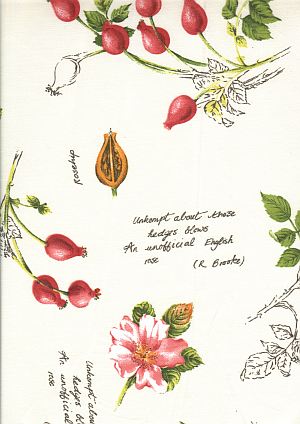 Rosehip
Unkempt about those
hedges blows
An unofficial English
rose
(R. Brooke)
Unkempt abou
hedges
An unofficial
rose